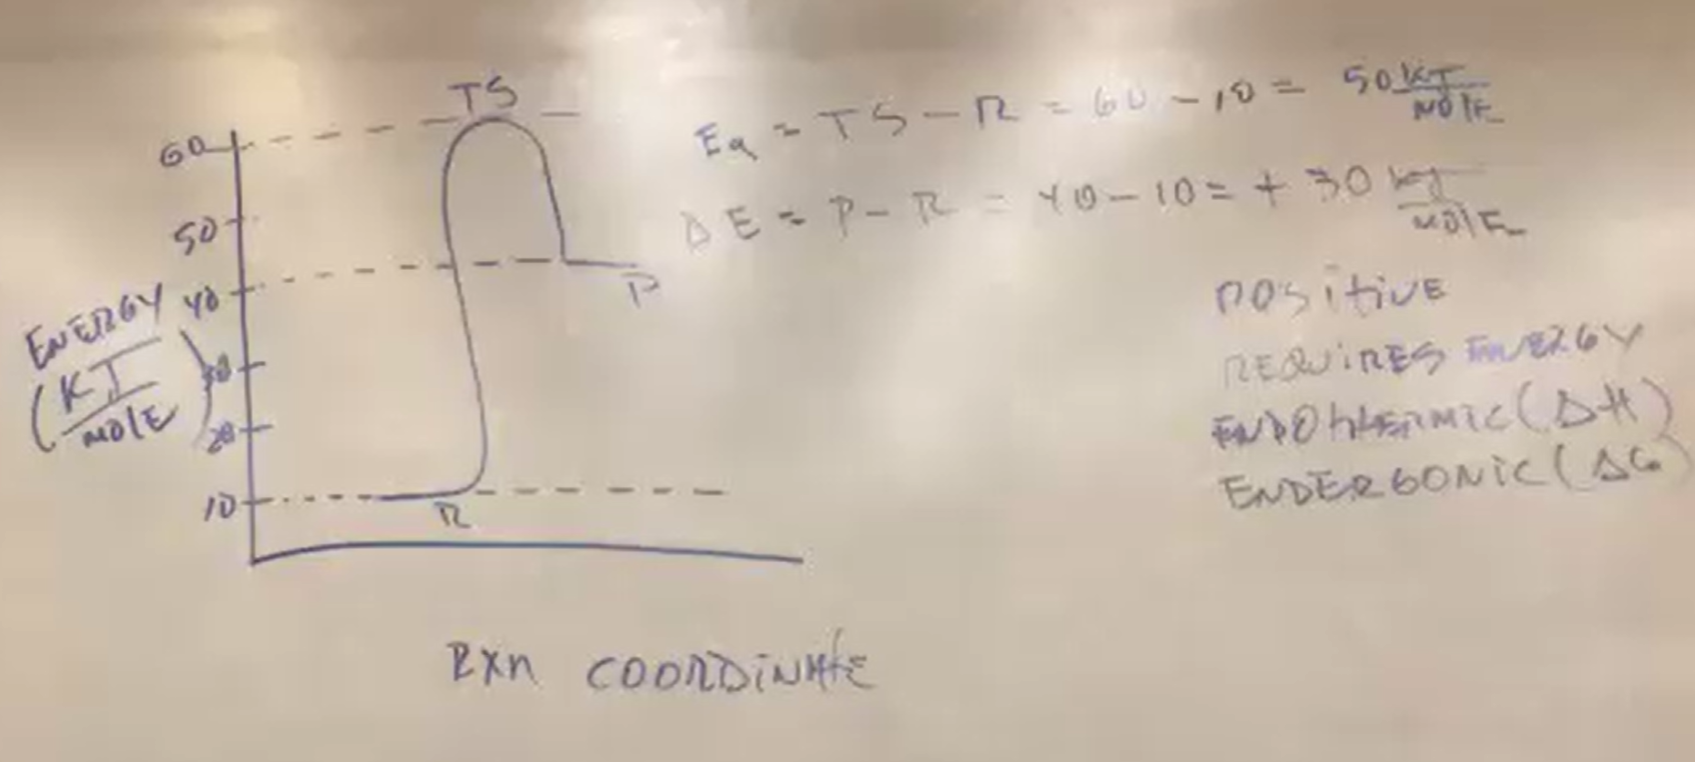 TS
60
50
40
30
20
10
ENERGY
(KJ
MOLE)
P
R
RXN COORDINATE
Ea = TS - R = 60 - 10 = 50 KJ
MOLE
ΔE = P - R = 40 - 10 = + 30 kJ
MOLE
POSITIVE
REQUIRES ENERGY
ENDOTHERMIC (ΔH)
ENDERGONIC (ΔG)